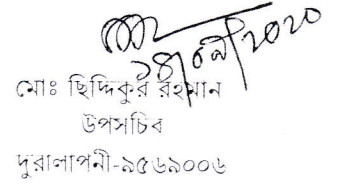 ১৪/০৯/২০২০
মোঃ ছিদ্দিকুর রহমান
উপসচিব
দুরালাপনী-৯৫৬৯০০৬